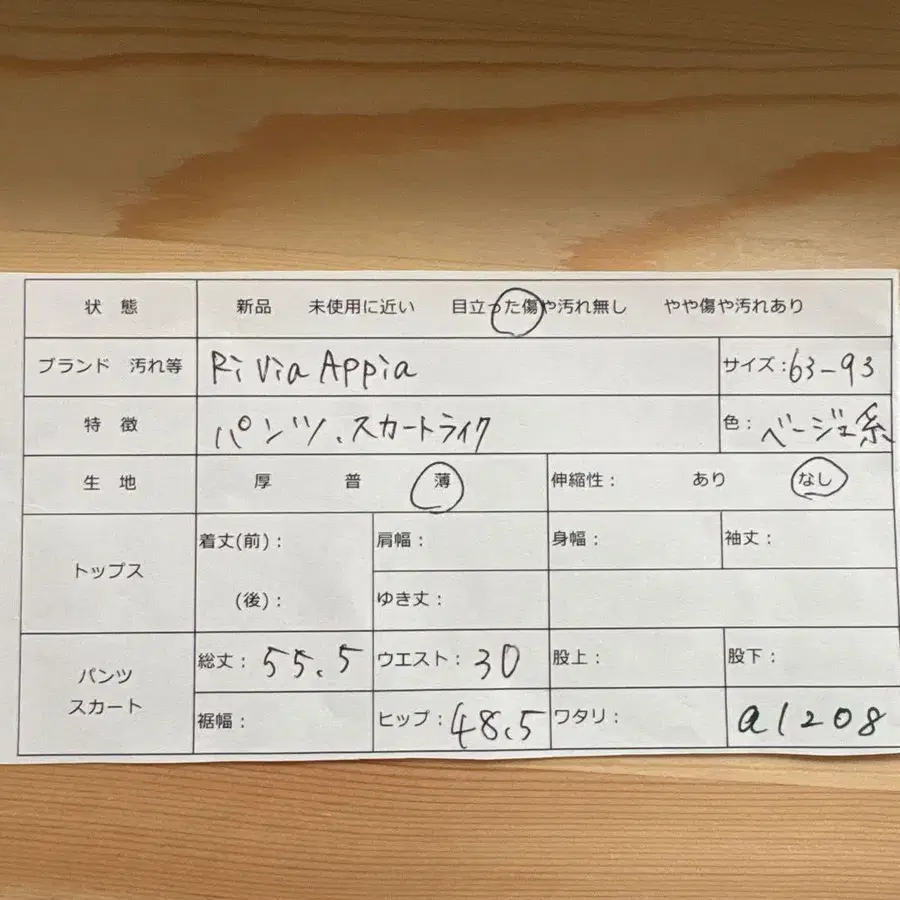 状 態 新品 未使用に近い 目立った傷や汚れ無し やや傷や汚れあり
ブランド 汚れ等 Ri Via Appia サイズ:63-93
特 徴 パンツ、スカートライク 色: ベージュ系
生 地 厚 普 薄 伸縮性: あり なし
トップス 着丈(前): 肩幅: 身幅: 袖丈:
(後): ゆき丈:
パンツ スカート 総丈: 55.5 ウエスト: 30 股上: 股下:
裾幅: ヒップ: 48.5 ワタリ: a1208